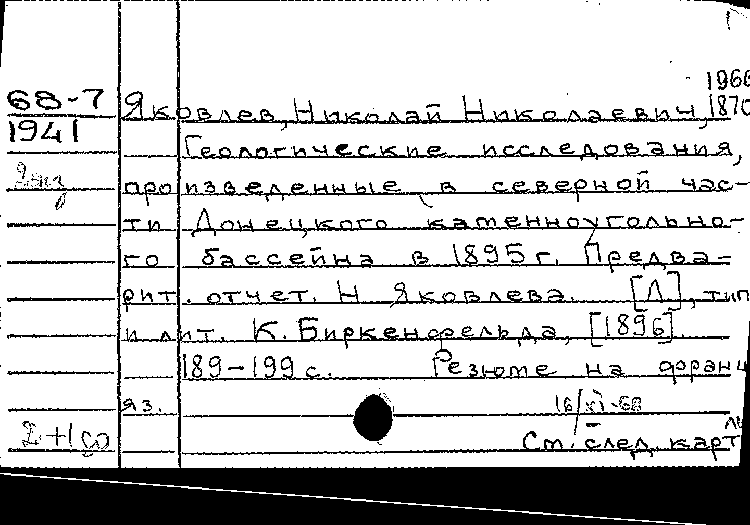 1966
68-7 Яковлев, Николай Николаевич, 1870
1941
Геологические исследования,
2 экз
произведенные в северной час-
ти Донецкого каменноугольно-
го бассейна в 1895 г. Предва-
рит. отчет. Н. Яковлева. [Л], тип
и лит. К. Биркенфельда, [1896].
189-199 с. Резюме на франц
яз.
16/XI-68
2+1
См. след. карт